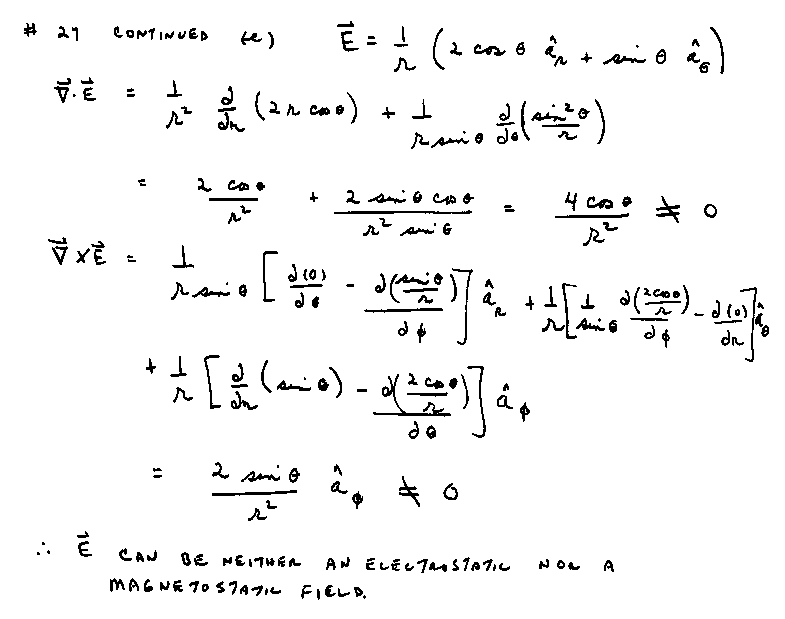 # 27 CONTINUED (c) \vec{E} = \frac{1}{r} (2 cos θ \hat{a}_r + sin θ \hat{a}_θ)
\vec{∇}·\vec{E} = \frac{1}{r^2} \frac{∂}{∂r} (2r cos θ) + \frac{1}{r sin θ} \frac{∂}{∂θ} (\frac{sin^2 θ}{r})
= \frac{2 cos θ}{r^2} + \frac{2 sin θ cos θ}{r^2 sin θ} = \frac{4 cos θ}{r^2} ≠ 0
\vec{∇} × \vec{E} = \frac{1}{r sin θ} [\frac{∂(0)}{∂θ} - \frac{∂(\frac{sin θ}{r})}{∂φ}] \hat{a}_r + \frac{1}{r} [\frac{1}{sin θ} \frac{∂(\frac{2 cos θ}{r})}{∂φ} - \frac{∂(0)}{∂r}] \hat{a}_θ
+ \frac{1}{r} [\frac{∂}{∂r} (sin θ) - \frac{∂(\frac{2 cos θ}{r})}{∂θ}] \hat{a}_φ
= \frac{2 sin θ}{r^2} \hat{a}_φ ≠ 0
∴ \vec{E} CAN BE NEITHER AN ELECTROSTATIC NOR A
MAGNETOSTATIC FIELD.